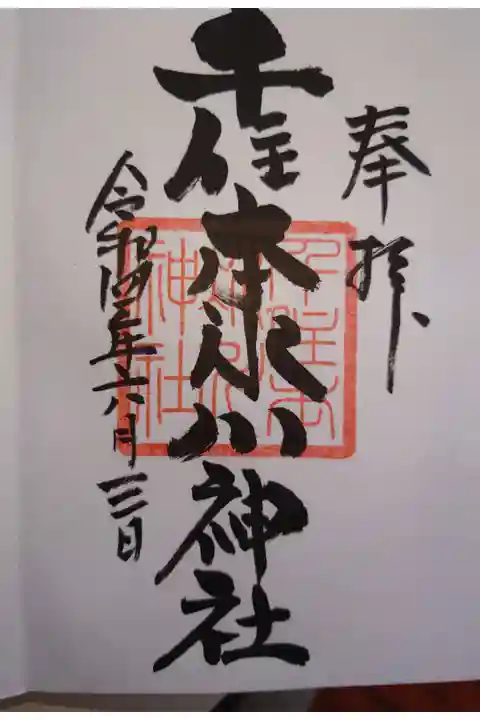 奉拝
千住本氷川神社
令和四年六月三日
千住本
氷川
神社